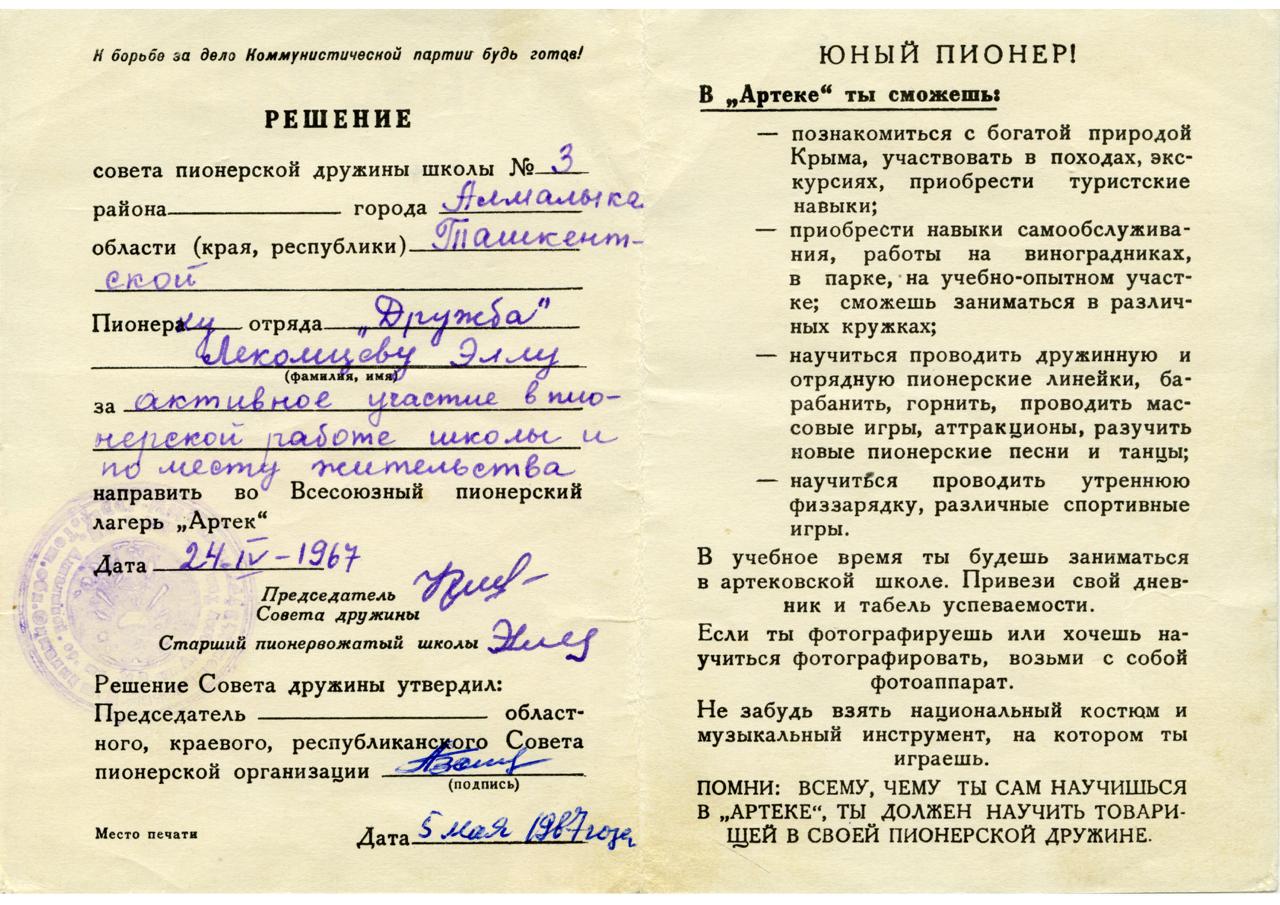 К борьбе за дело Коммунистической партии будь готов!
РЕШЕНИЕ
совета пионерской дружины школы № 3
района города Алмалыка
области (края, республики) Ташкент-
ской
Пионерку отряда „Дружба"
Лекомцеву Эллу
(фамилия, имя)
за активное участие в пио-
нерской работе школы и
по месту жительства
направить во Всесоюзный пионерский
лагерь „Артек“
Дата 24.IV-1967
Председатель
Совета дружины
Старший пионервожатый школы
Решение Совета дружины утвердил:
Председатель област-
ного, краевого, республиканского Совета
пионерской организации
(подпись)
Место печати Дата 5 мая 1967 года
ЮНЫЙ ПИОНЕР!
В „Артеке“ ты сможешь:
— познакомиться с богатой природой
Крыма, участвовать в походах, экс-
курсиях, приобрести туристские
навыки;
— приобрести навыки самообслужива-
ния, работы на виноградниках,
в парке, на учебно-опытном участ-
ке; сможешь заниматься в различ-
ных кружках;
— научиться проводить дружинную и
отрядную пионерские линейки, ба-
рабанить, горнить, проводить мас-
совые игры, аттракционы, разучить
новые пионерские песни и танцы;
— научиться проводить утреннюю
физзарядку, различные спортивные
игры.
В учебное время ты будешь заниматься
в артековской школе. Привези свой днев-
ник и табель успеваемости.
Если ты фотографируешь или хочешь на-
учиться фотографировать, возьми с собой
фотоаппарат.
Не забудь взять национальный костюм и
музыкальный инструмент, на котором ты
играешь.
ПОМНИ: ВСЕМУ, ЧЕМУ ТЫ САМ НАУЧИШЬСЯ
В „АРТЕКЕ“, ТЫ ДОЛЖЕН НАУЧИТЬ ТОВАРИ-
ЩЕЙ В СВОЕЙ ПИОНЕРСКОЙ ДРУЖИНЕ.